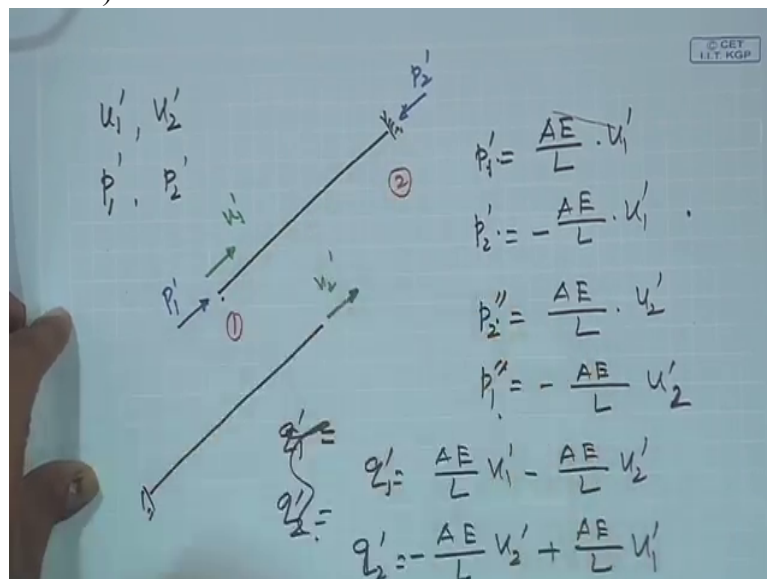 )
© CET
I.I.T. KGP
u₁', u₂'
p₁', p₂'
p₂'
②
u₁'
p₁'
①
u₂'
p₁' = AE/L · u₁'
p₂' = - AE/L · u₁' .
p₂'' = AE/L · u₂'
p₁'' = - AE/L u₂'
q₁' =
q₂' =
q₁' = AE/L u₁' - AE/L u₂'
q₂' = - AE/L u₂' + AE/L u₁'